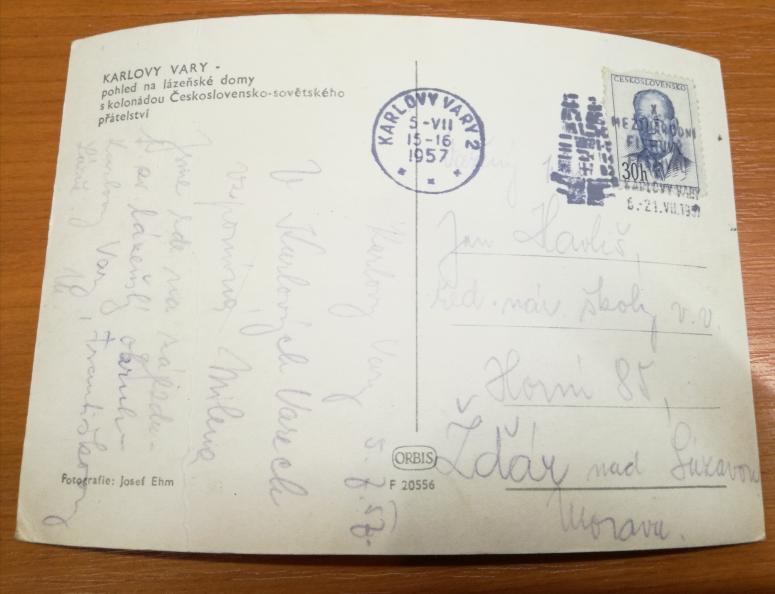 KARLOVY VARY -
pohled na lázeňské domy
s kolonádou Československo-sovětského
přátelství
KARLOVY VARY 2
5-VII
15-16
1957
ČESKOSLOVENSKO
30h
X
MEZINÁRODNÍ
KARLOVY VARY
6.-21.VII.1957
Jan Havliš,
řed. nár. školy v.v.
Horní 85,
Žďár nad Sázavou
Morava.
Karlovy Vary 5.7.57.
V Karlových Varech
vzpomíná Milena
Jsme zde na zájezdu
lázeňský okruh
Karlovy Vary, Františkovy
Lázně
ORBIS
F 20556
Fotografie: Josef Ehm